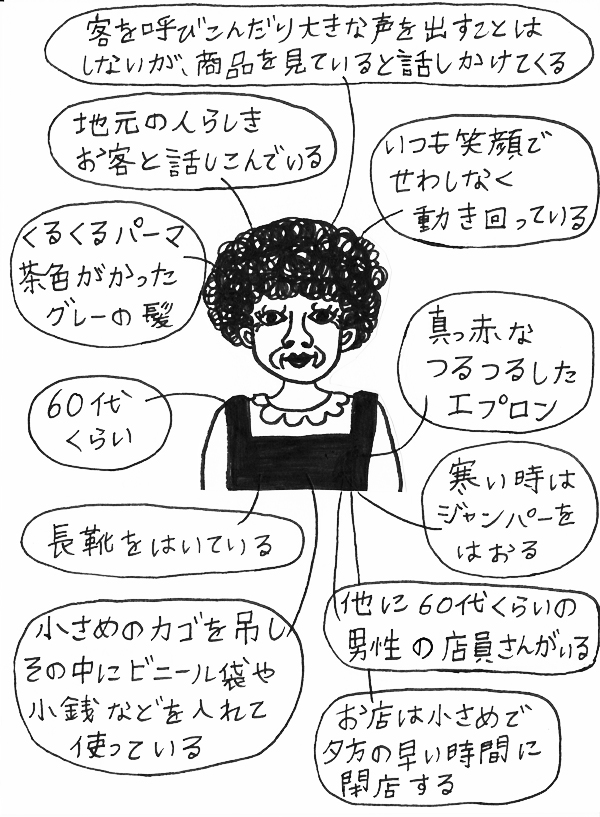 客を呼びこんだり大きな声を出すことは
しないが、商品を見ていると話しかけてくる
地元の人らしき
お客と話しこんでいる
いつも笑顔で
せわしなく
動き回っている
くるくるパーマ
茶色がかった
グレーの髪
真っ赤な
つるつるした
エプロン
60代
くらい
寒い時は
ジャンパーを
はおる
長靴をはいている
他に60代くらいの
男性の店員さんがいる
小さめのカゴを吊し
その中にビニール袋や
小銭などを入れて
使っている
お店は小さめで
夕方の早い時間に
閉店する